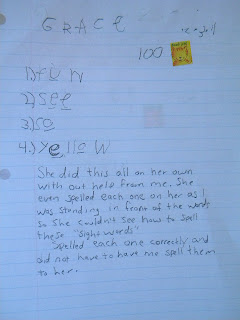 GRACE
100
1) run
2) see
3.) so
4.) yellow
She did this all on her own
with out help from me. She
even spelled each one on her as I
was standing in front of the words
so she couldn't see how to spell
these "sight words"
spelled each one correctly and
did not have to have me spell them
to her.